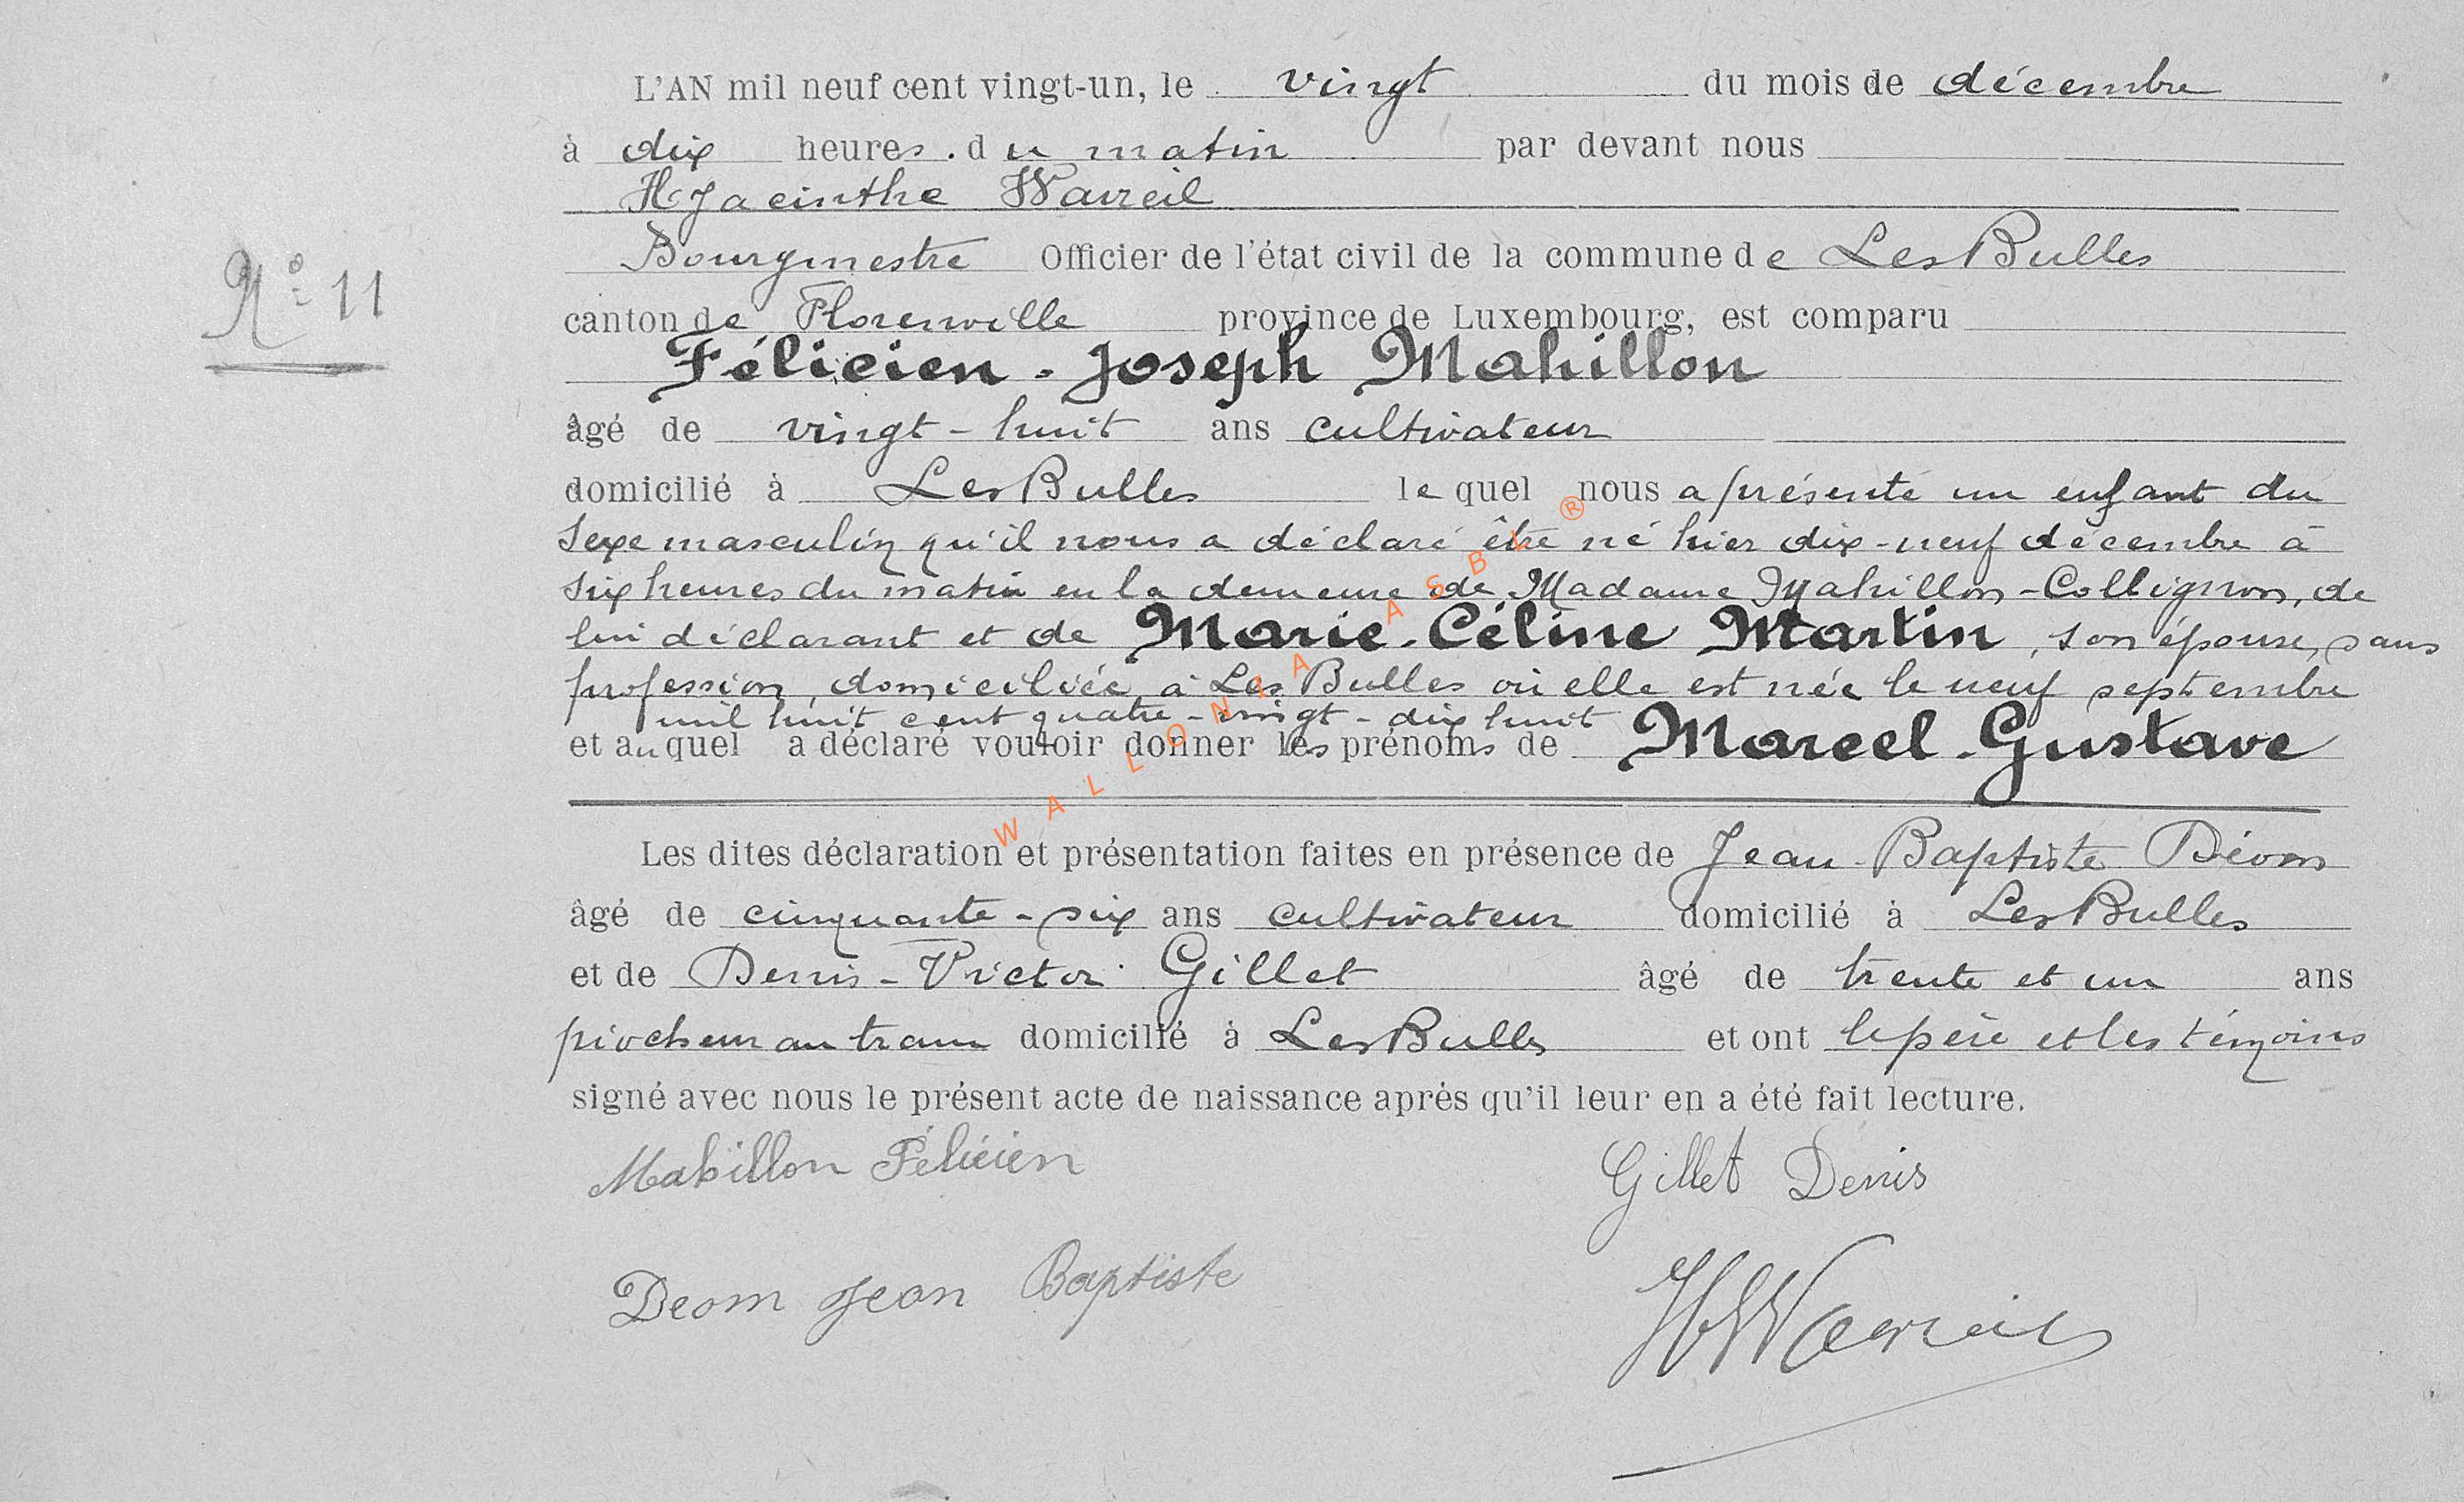 L'AN mil neuf cent vingt-un, le vingt du mois de décembre
à dix heures du matin par devant nous
Hyacinthe Wavreil
Bourgmestre Officier de l'état civil de la commune de Les Bulles
N° 11
canton de Florenville province de Luxembourg, est comparu
Félicien-Joseph Mahillon
âgé de vingt-huit ans cultivateur
domicilié à Les Bulles lequel nous a présenté un enfant du
sexe masculin qu'il nous a déclaré être né hier dix-neuf décembre à
six heures du matin en la demeure de Madame Mahillon-Collignon, de
lui déclarant et de Marie-Céline Martin, son épouse, sans
profession, domiciliée à Les Bulles où elle est née le neuf septembre
mil huit cent quatre-vingt-dix huit
et auquel a déclaré vouloir donner les prénoms de Marcel-Gustave
WALLONIA ASBL ®
Les dites déclaration et présentation faites en présence de Jean-Baptiste Déom
âgé de cinquante-six ans cultivateur domicilié à Les Bulles
et de Denis-Victor Gillet âgé de trente et un ans
piocheur au tram domicilié à Les Bulles et ont le père et les témoins
signé avec nous le présent acte de naissance après qu'il leur en a été fait lecture.
Mahillon Félicien Gillet Denis
Deom Jean Baptiste
HWavreil